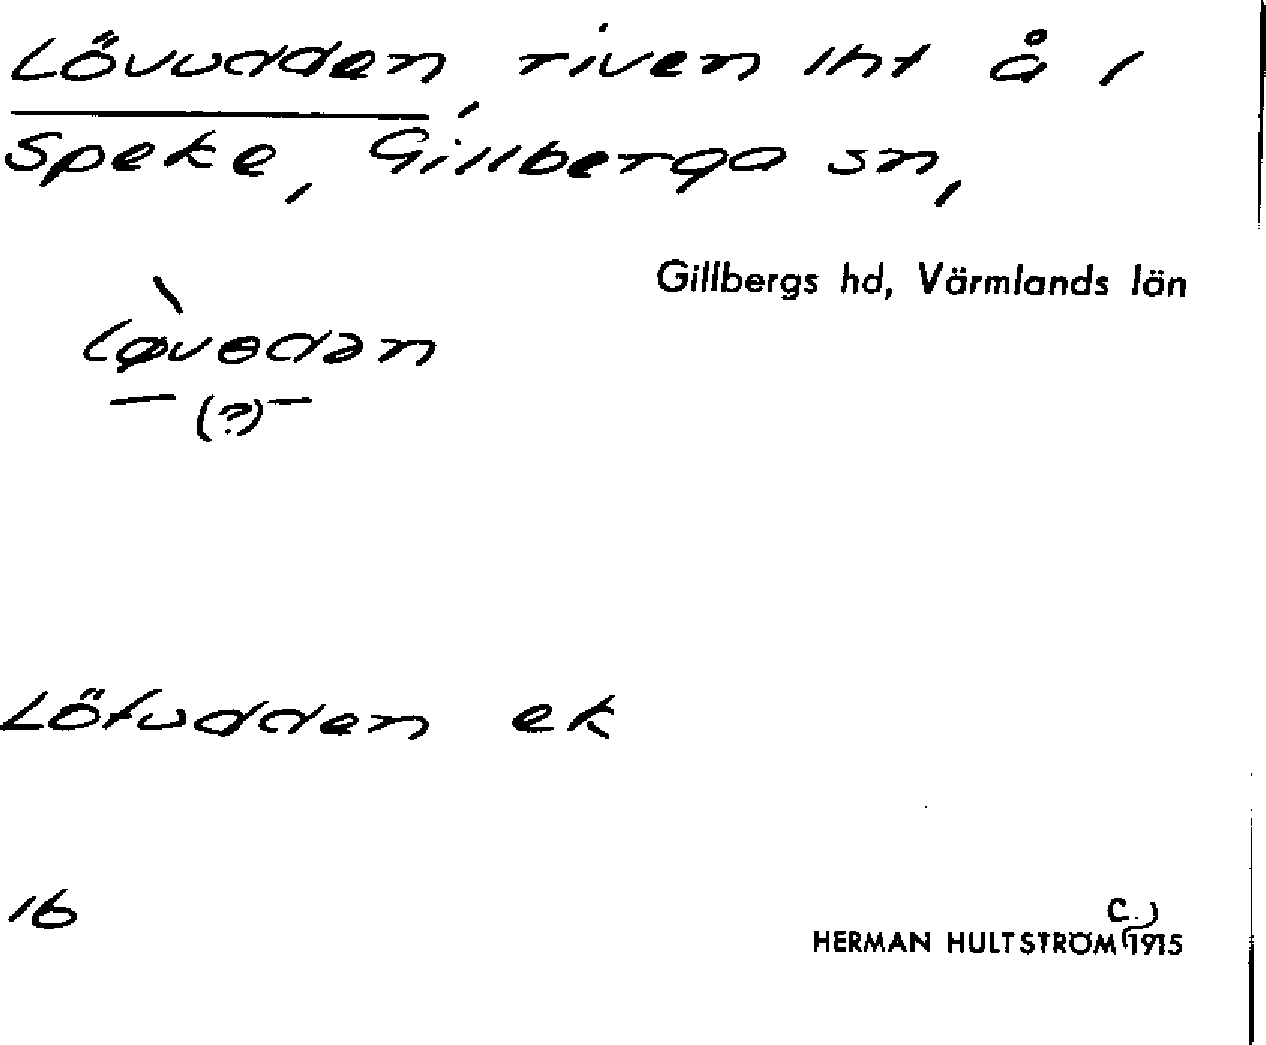 Lövudden, riven lht å i
Speke, Gillberga sn,
Gillbergs hd, Värmlands län
(?)
Löfudden ek
16
HERMAN HULTSTRÖM (c. 1915)